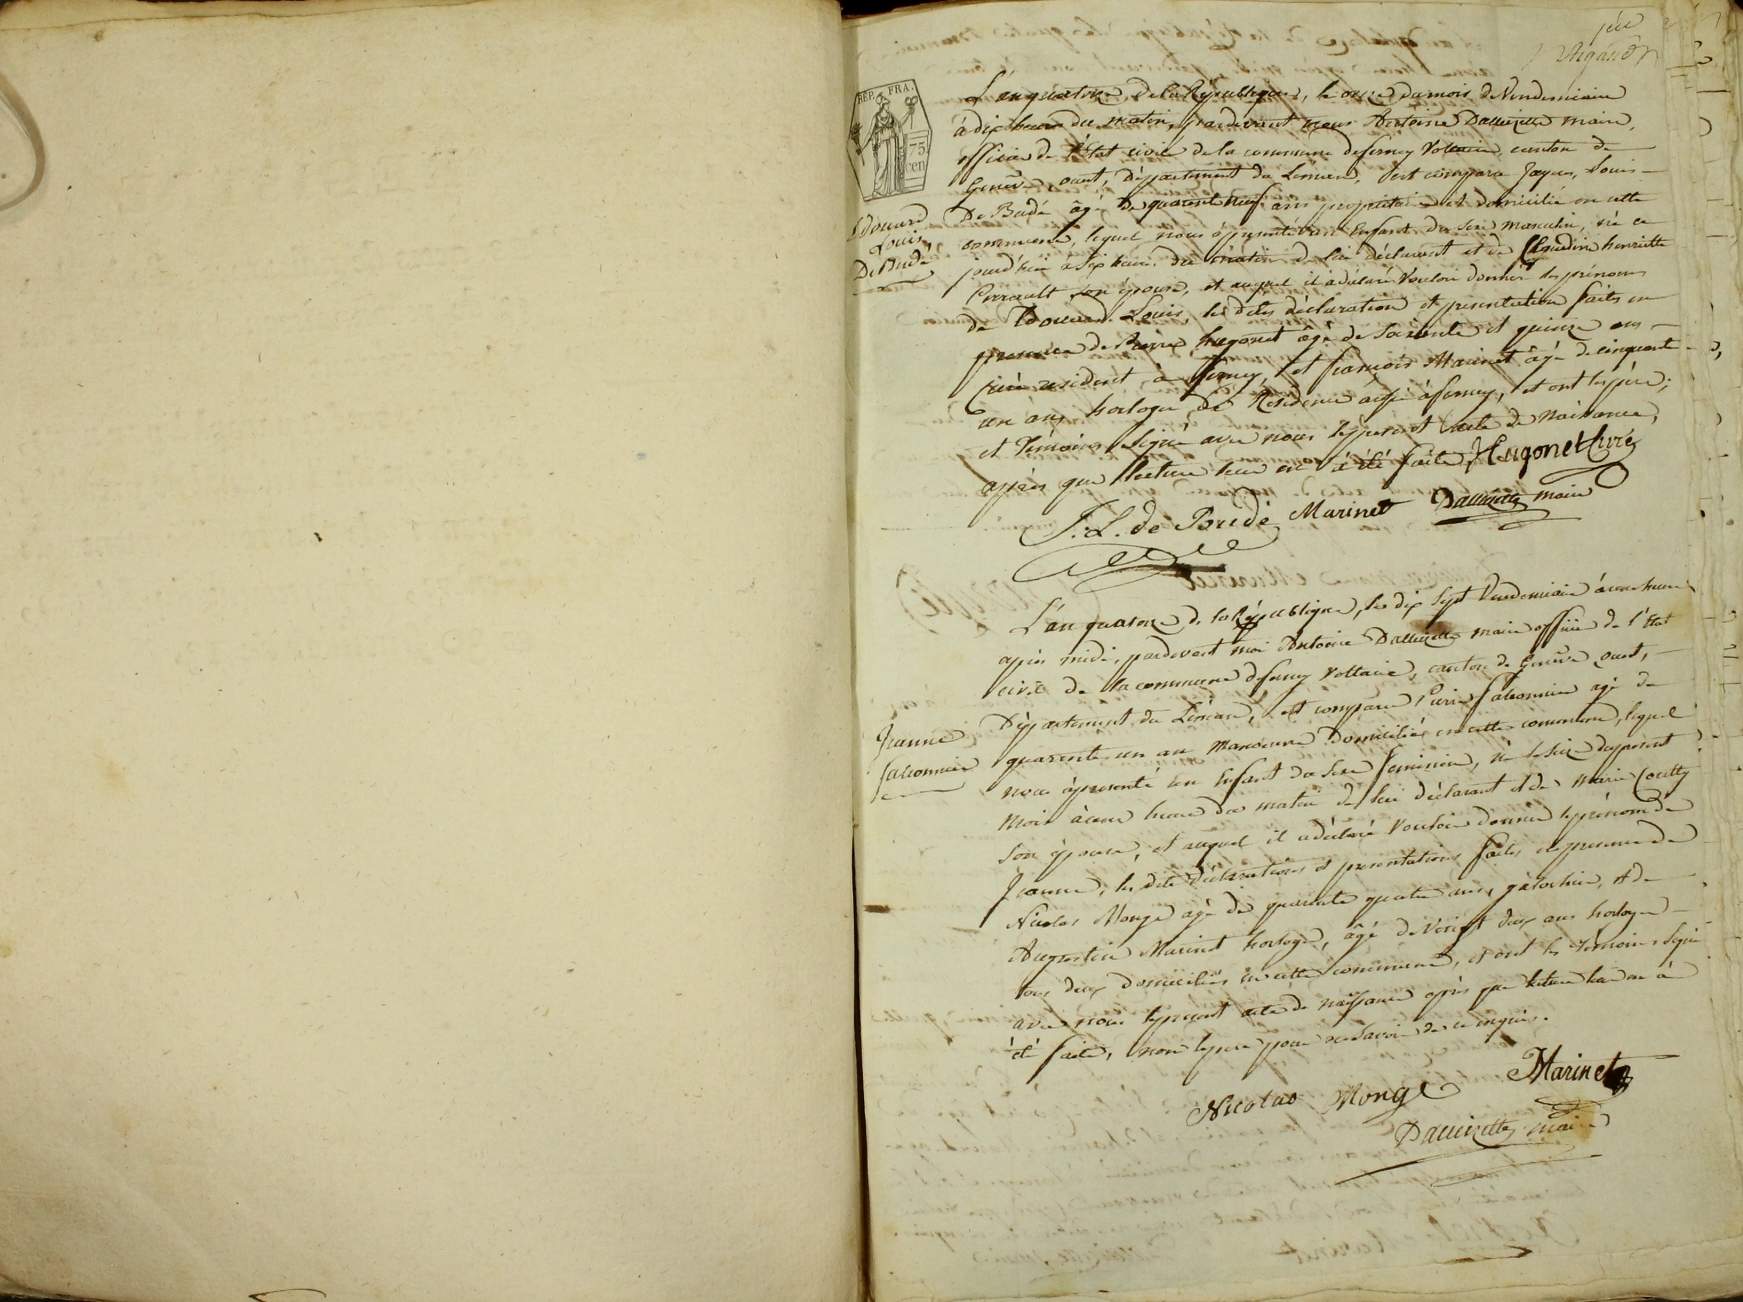 REP. FRA.
75
cen
L'an quatorze de la République, le onze du mois de Vendemiaire
à dix heures du matin, pardevant nous Antoine maire,
officier de l'état civil de la commune de ferney Voltaire, canton de
Genêve ouest, Département du Leman, est comparu Jaques Louis
De Budé âgé de quarante neuf ans propriétaire et domicilié en cette
commune, lequel nous à présenté un Enfant du sexe masculin, né ce
jourd'hui à six heures du matin de lui déclarant et de henriette
son épouse, et auquel il à déclaré Vouloir donner les prénoms
de Edouard Louis, les dites déclaration et presentation faites en
presence de Pierre hugonet âgé de soixante et quinze ans
Curé resident à ferney, et françois Marinet âgé de cinquante
un ans, horloger de Residence aussi à ferney, et ont les père,
et temoins signé avec nous le present acte de naissance,
après que lecture leur en à été faite, Hugonet Curé
J: L. de Budé Marinet maire
Edouard
Louis
De Budé
L'an quatorze de la République, le dix sept Vendemiaire à une heure
après midi, pardevant moi Antoine maire officier de l'état
civil de la commune de ferney Voltaire, canton de Genêve ouest,
Département du Léman, est comparu Pierre falconnier agé de
quarante un an Domicilié en cette commune, lequel
nous à presenté un Enfant du sexe feminin, né le seize du present
mois à une heure du matin de lui déclarant et de marie
son épouse, et auquel il a déclaré Vouloir donner le prénom de
Jeanne, les dites déclarations et presentations faites en presence de
Nicolas Monge agé de quarante quatre ans, et de
Augustin Marinet horloger, âgé de Vingt deux ans
tous deux domiciliés en cette commune, et ont les temoins signé
avec nous le present acte de naissance après que lecture leur en à
été faite, non le père pour ne savoir de ce enquis.
Jeanne
falconnier
Nicolas Monge Marinet
maire